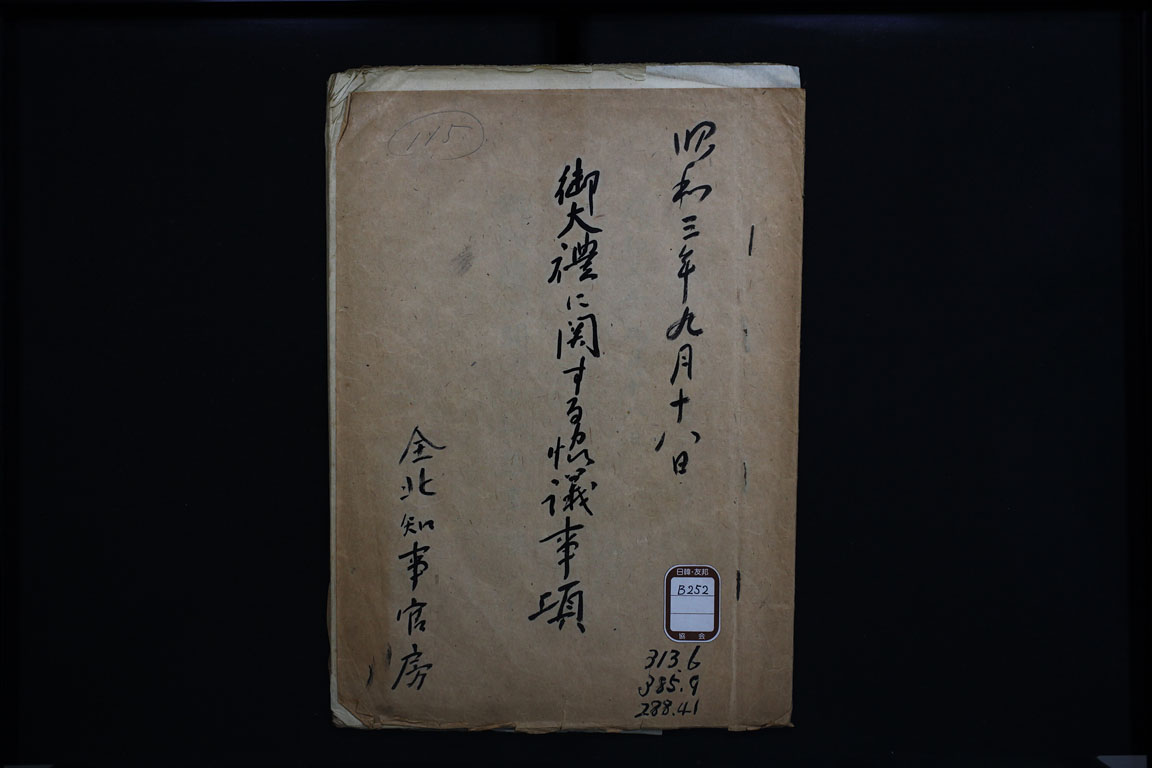 昭和三年九月十八日
御大禮に関する協議事項
全北知事官房
115
日韓・友邦
B252
協会
313.6
385.9
288.41